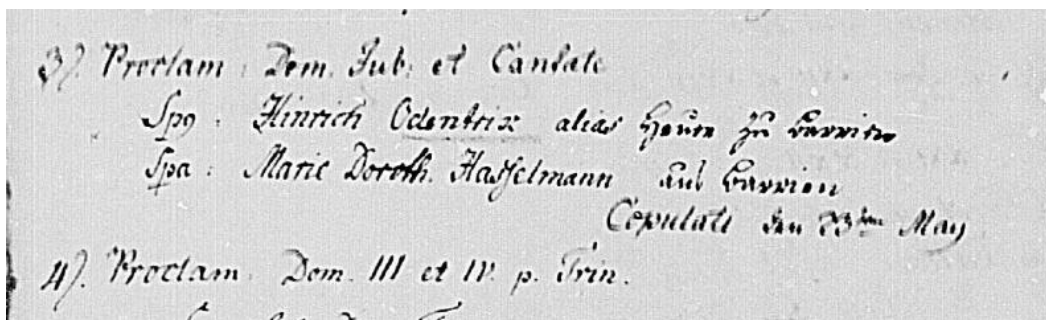 3). Proclam: Dom. Jub: et Cantate
Sps: Hinrich Odentrix alias Heure zu Barrien
Spa: Marie Doroth. Hasselmann aus Barrien
Copulati den 23ten May
4). Proclam: Dom. III et IV. p. Trin.